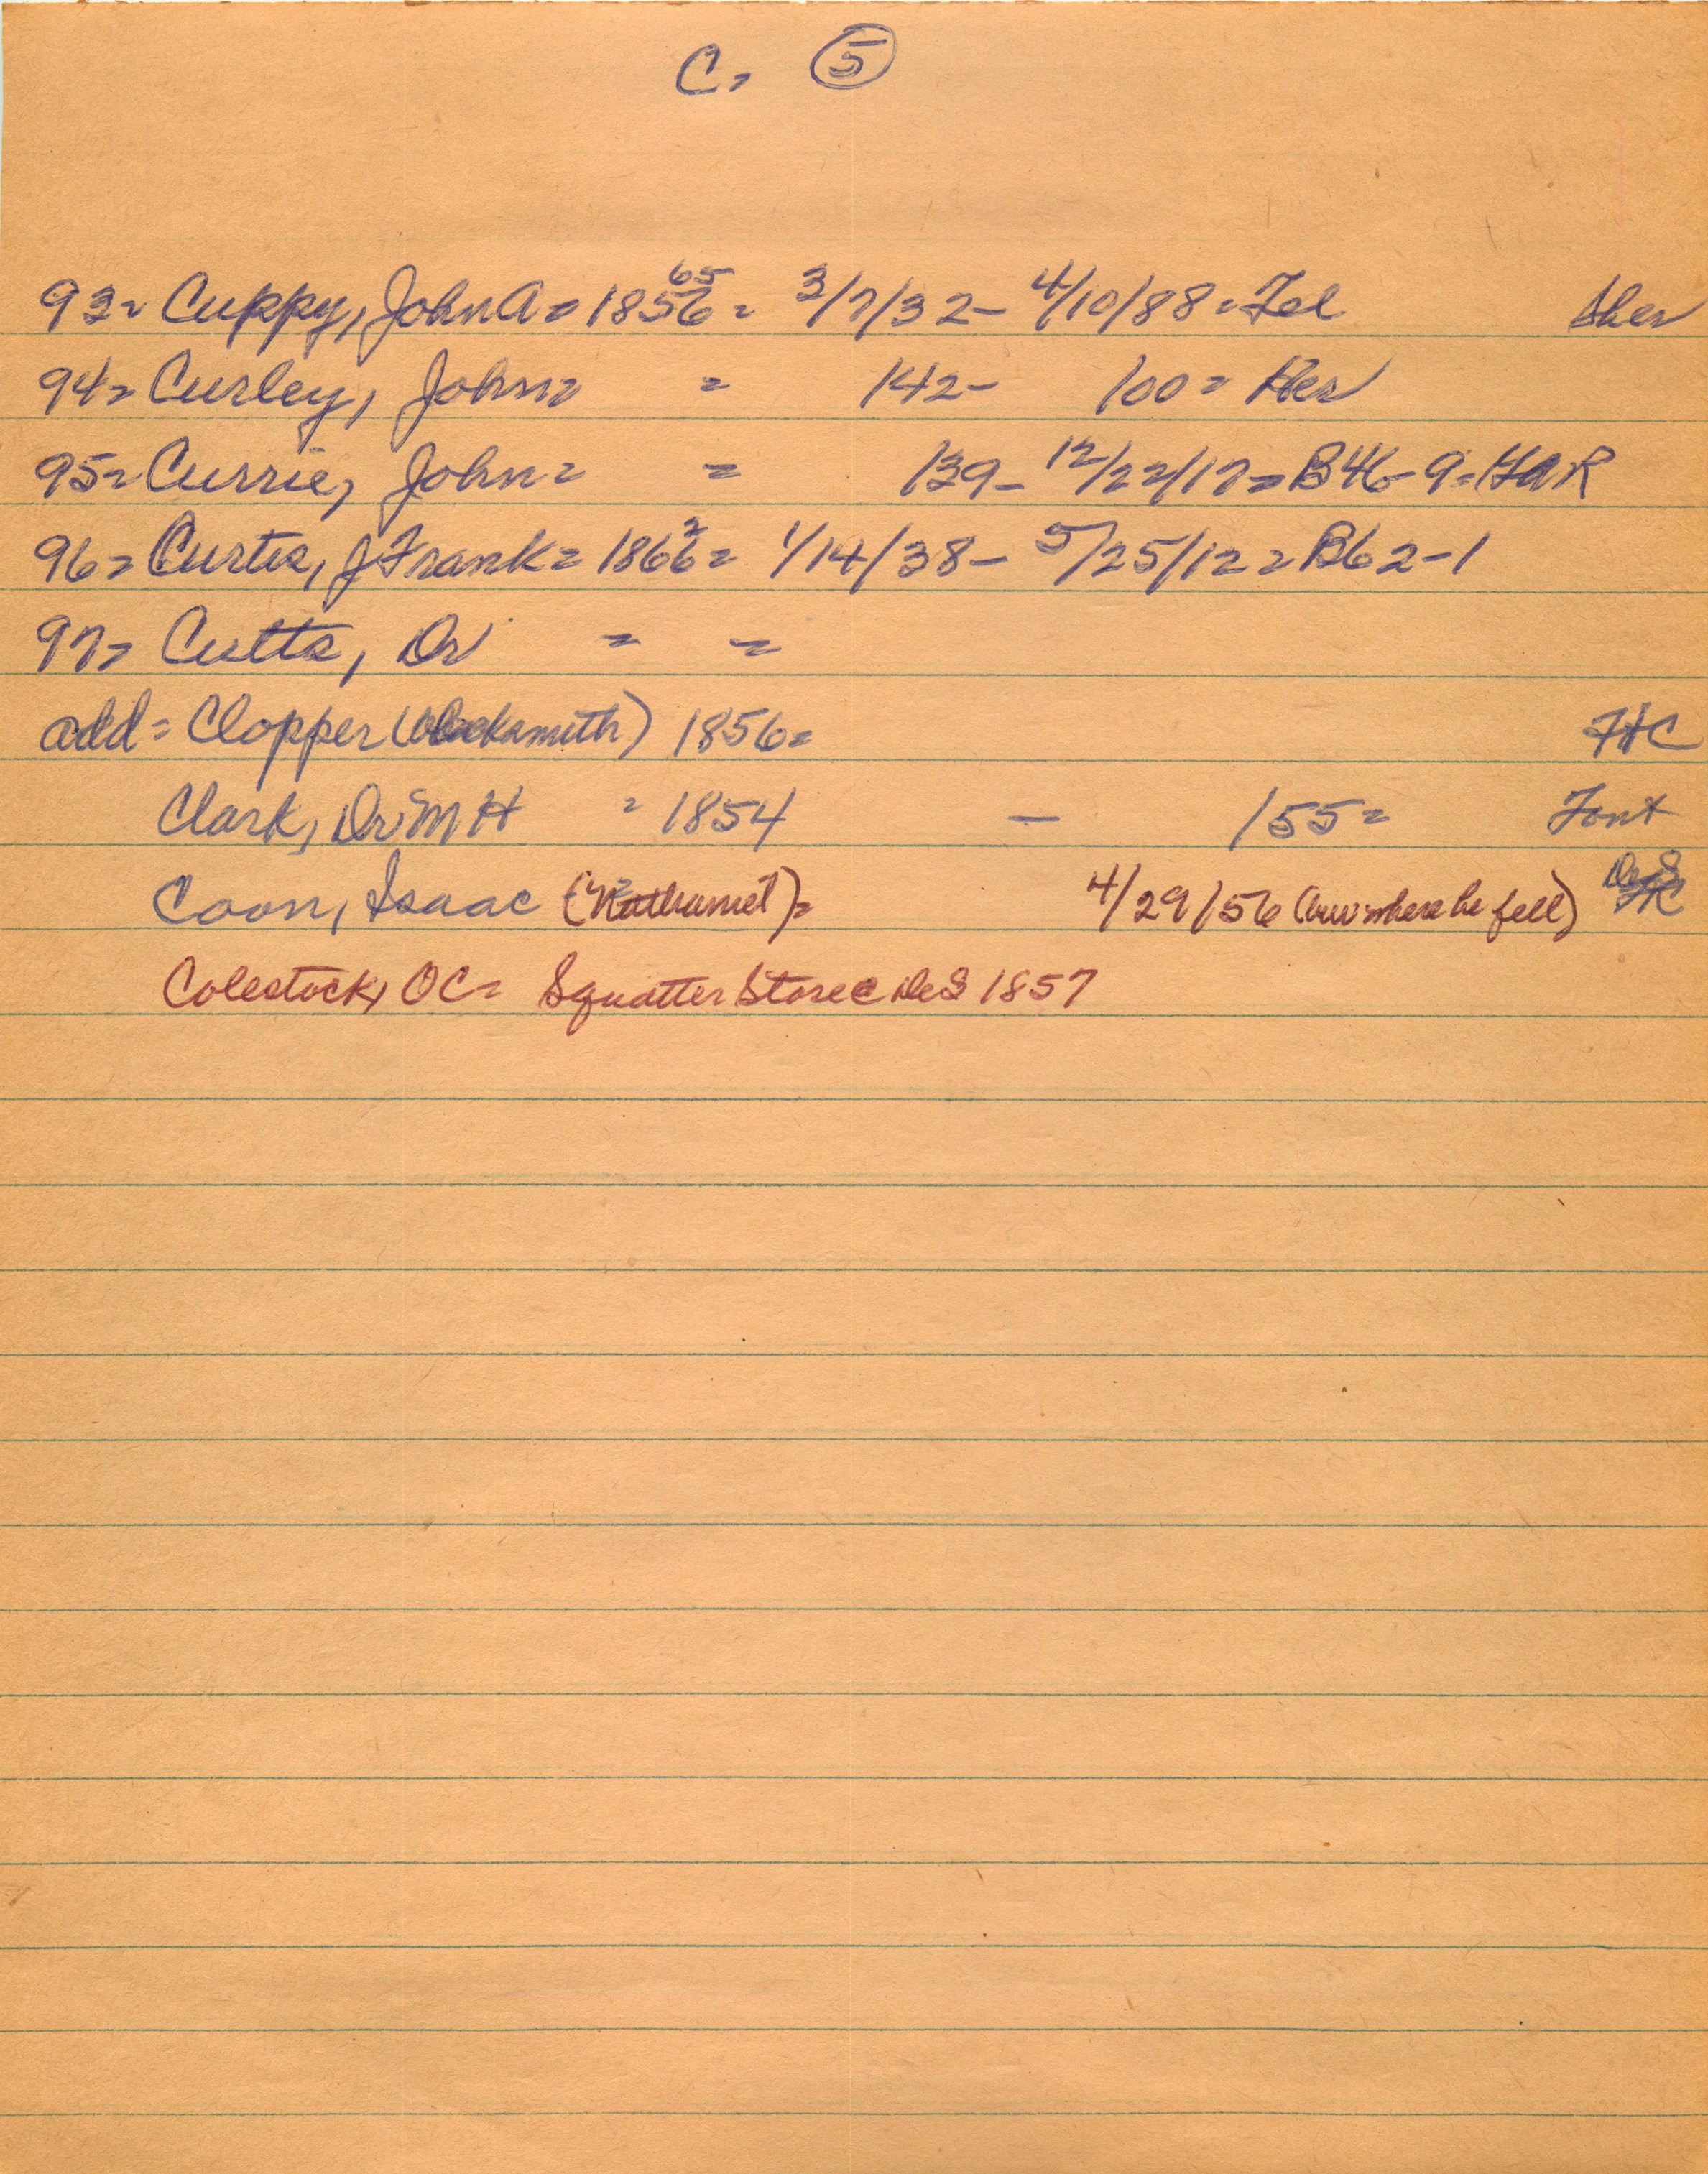 C. 5
93 = Cuppy, John A = 1856 65 = 3/7/32 - 4/10/88 = Fel Sher
94 = Curley, John = = 142 - 100 = Her
95 = Currie, John = = 139 - 12/22/17 = B46-9 = HAR
96 = Curtis, J Frank = 1866 2 = 1/14/38 - 5/25/12 = B62-1
97 = Cutts, Dr = =
add = Clopper (blacksmith) 1856 = FHC
Clark, Dr M H = 1854 - 155 = Font
Coon, Isaac (Nathaniel) = 4/29/56 (bur where he fell) DeS
Colestock, OC = Squatter Store @ DeS 1857